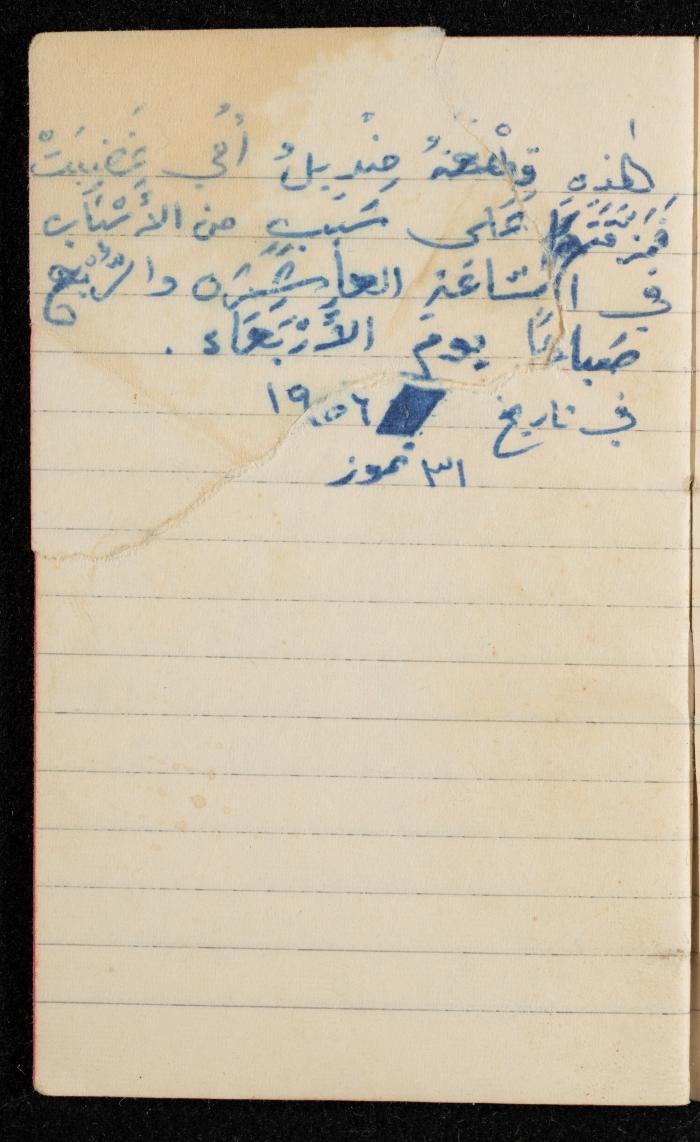 هٰذه قِطْعَةُ مِنْدِيلُ أُمّي غَضِبَتْ
فَمَزَّقَتْهَا عَلَى سَبَبٍ من الأَسْبَابِ
في السّاعَةِ العاشِرَه والرُّبْعِ
صَباحًا يومَ الأَرْبَعَاء .
في تاريخ ١٩٥٦
٣١ تموز